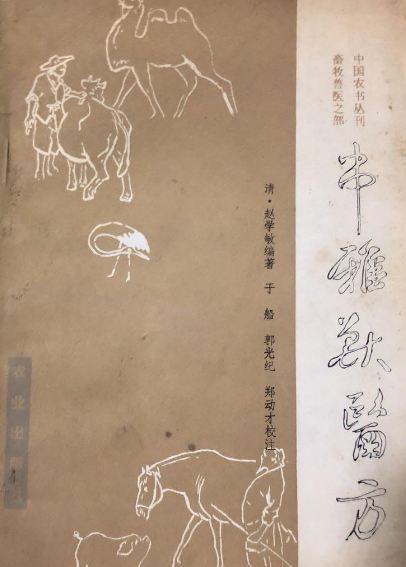 中国农书丛刊
畜牧兽医之部
串雅獸醫方
清·赵学敏编著 于船 郭光纪 郑动才校注
农业出